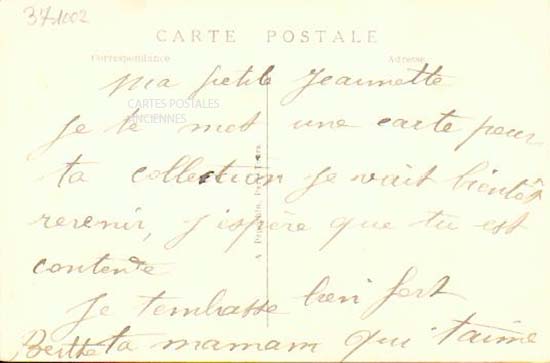 371002
CARTE POSTALE
Correspondance
Adresse
CARTES POSTALES
ANCIENNES
Ma petite Jeannette
Je te met une carte pour
ta collection Je vait bientôt
revenir, j'espère que tu est
contente
Je t'embasse bien fort
Berthe ta mamam qui t'aime